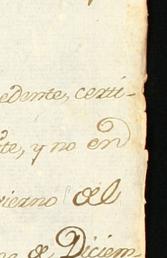 edente, certi-
te, y no en
vierno del
de Diciem-